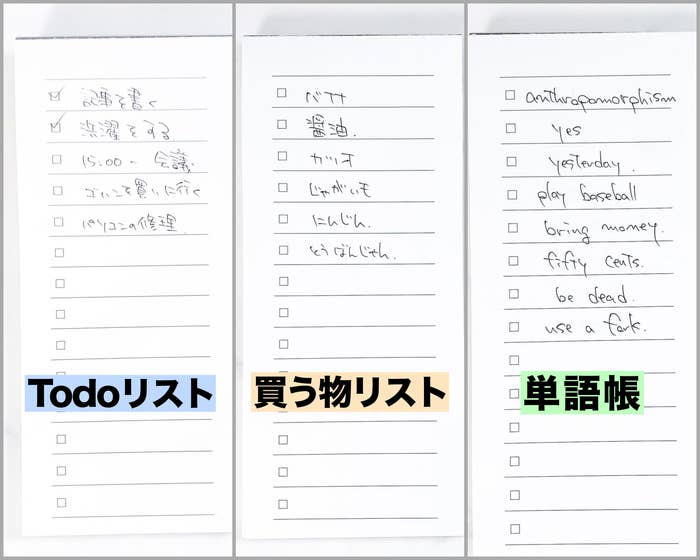 記事を書く
洗濯をする
15:00〜 会議.
を買いに行く
パソコンの修理.
Todoリスト
醤油.
カツオ
じゃがいも
にんじん.
とうばんじゃん.
買う物リスト
anthropomorphism
yes
yesterday.
play baseball
bring money.
fifty cents.
be dead.
use a fork.
単語帳